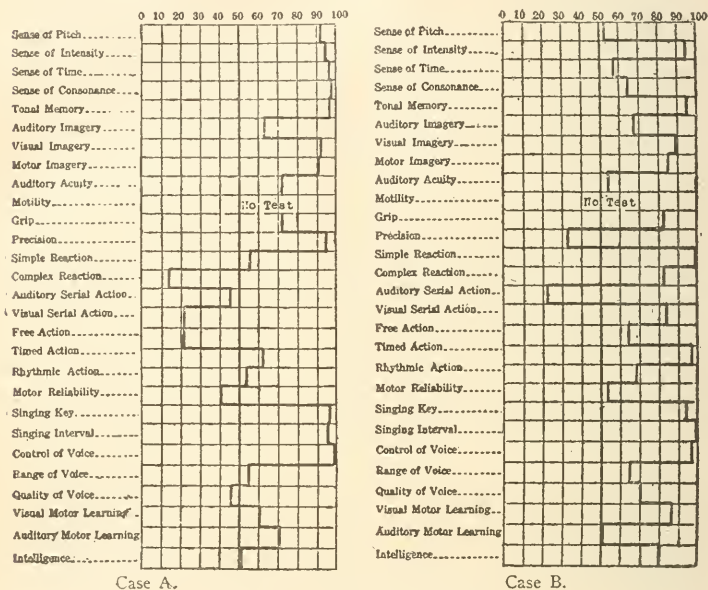 0 10 20 30 40 50 60 70 80 90 100
Sense of Pitch
Sense of Intensity
Sense of Time
Sense of Consonance
Tonal Memory
Auditory Imagery
Visual Imagery
Motor Imagery
Auditory Acuity
Motility No Test
Grip
Precision
Simple Reaction
Complex Reaction
Auditory Serial Action
Visual Serial Action
Free Action
Timed Action
Rhythmic Action
Motor Reliability
Singing Key
Singing Interval
Control of Voice
Range of Voice
Quality of Voice
Visual Motor Learning
Auditory Motor Learning
Intelligence
Case A.
0 10 20 30 40 50 60 70 80 90 100
Sense of Pitch
Sense of Intensity
Sense of Time
Sense of Consonance
Tonal Memory
Auditory Imagery
Visual Imagery
Motor Imagery
Auditory Acuity
Motility No Test
Grip
Precision
Simple Reaction
Complex Reaction
Auditory Serial Action
Visual Serial Action
Free Action
Timed Action
Rhythmic Action
Motor Reliability
Singing Key
Singing Interval
Control of Voice
Range of Voice
Quality of Voice
Visual Motor Learning
Auditory Motor Learning
Intelligence
Case B.